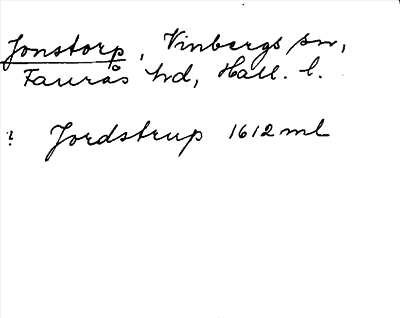 Jonstorp, Vinbergs sn,
Faurås hd, Hall. l.
? Jordstrup 1612 ml